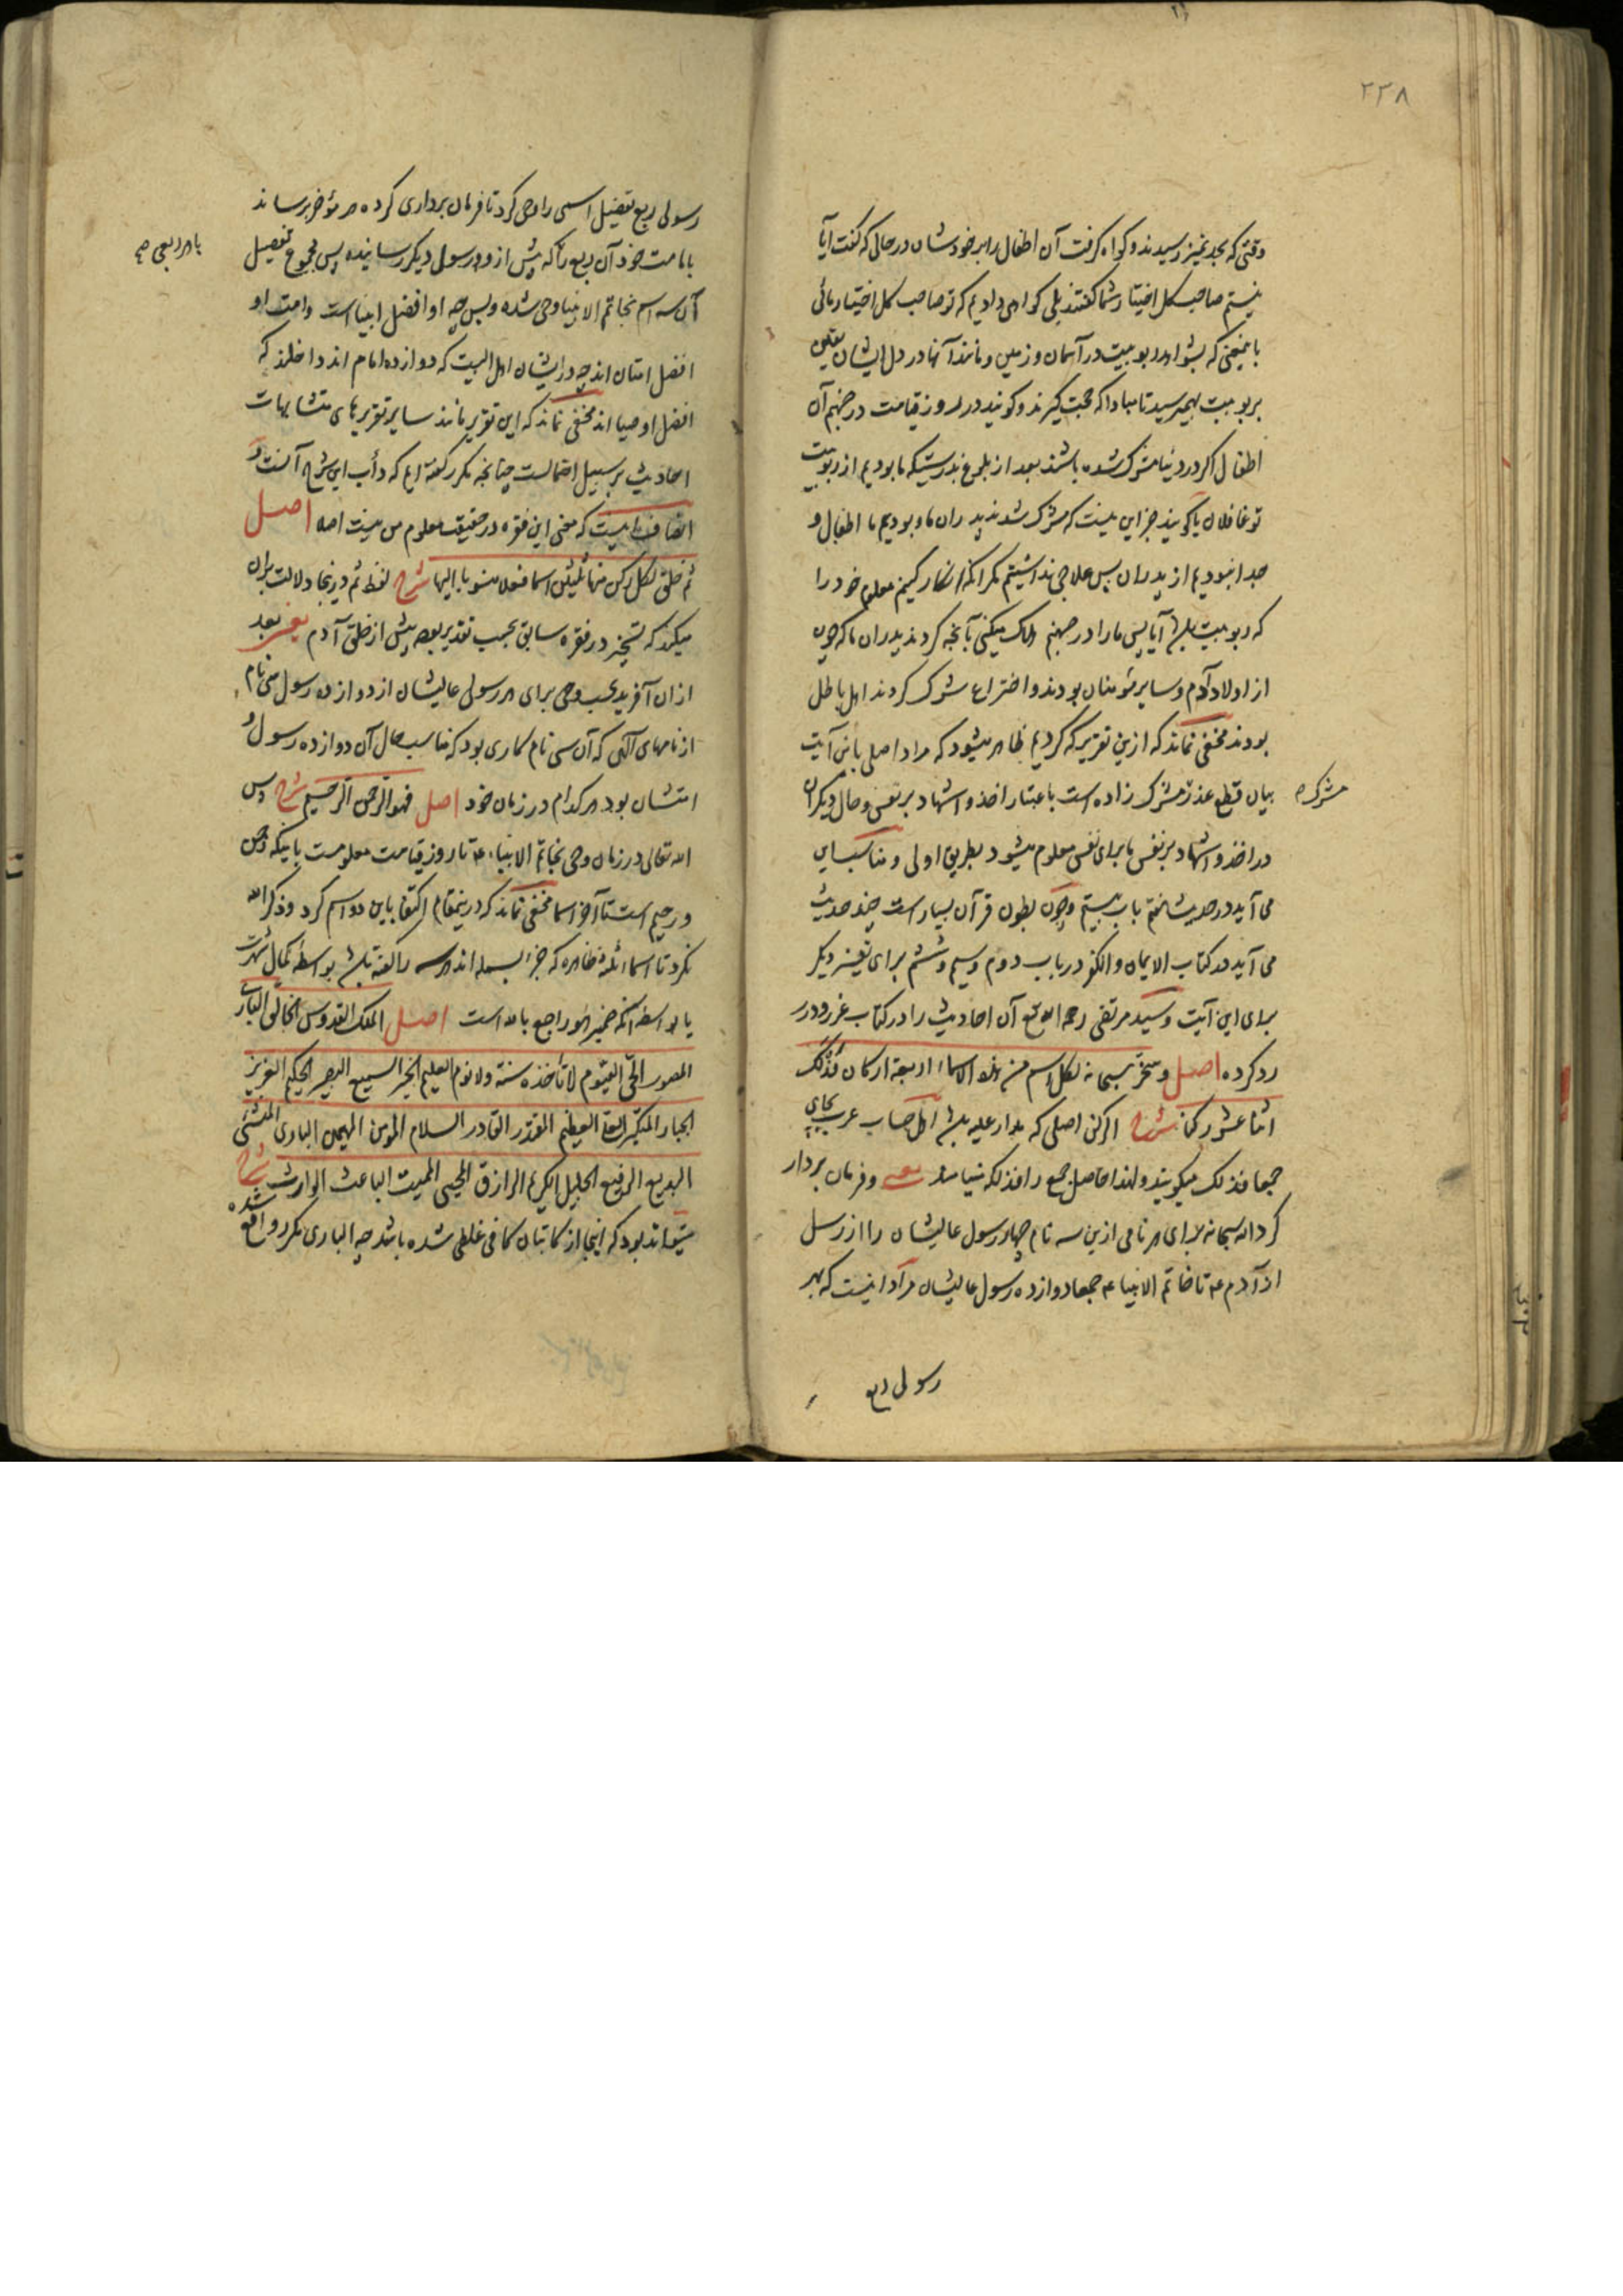 ۲۳۸
وقتی که بحد تمیز رسیدند و کواه کرفت آن اطفال را بر خودشان در حالی که کفت آیا
نیستم صاحب کل اختیار شما کفتند بلی کواهی دادیم که تو صاحب کل اختیار مائی
باینمعنی که بشواهد ربوبیت در آسمان و زمین و مانند آنها در دل ایشان یقین
بربوبیت بهم رسید تا مبادا که حجت کیرند و کویند در روز قیامت در جهنم آن
اطفال اکر در دنیا مشرک شده باشند بعد از بلوغ بدرستیکه ما بودیم از ربوبیت
تو غافلان یا کویند جز این نیست که مشرک شدند پدران ما و بودیم ما اطفال و
جدا نبودیم از پدران پس علاجی نداشتیم مکر آنکه انکار کنیم معلوم خود را
که ربوبیت باشد آیا پس ما را در جهنم هلاک میکنی بآنچه کردند پدران ما که چون
از اولاد آدم و سایر مؤمنان بودند و اختراع شرک کردند اهل باطل
بودند مخفی نماند که ازین تقریر که کردیم ظاهر میشود که مراد اصلی باین آیت
بیان قطع عذر مشرک زاده است باعتبار اخذ و اشهاد بر نفس و حال دیکران
مشرک
در اخذ و اشهاد بر نفس یا برای نفس معلوم میشود بطریق اولی و مناسب این
می آید در حدیث هفتم باب بیستم و چون بطون قرآن بسیار است چند حدیث
می آید در کتاب الایمان و الکفر در باب دوم و سیم و ششم برای تفسیر دیکر
برای این آیت و سید مرتضی رحمه الله تع آن احادیث را در کتاب غرر و درر
رد کرده اصل و سخر سبحانه لکل اسم من هذه الاسماء اربعة ارکان فذلک
اثنا عشر رکنا شرح الرکن اصلی که مدار علیه باشد اهل حساب عرب بجای
جمعا فذلک میکویند و لهذا حاصل جمع را فذلکه مینامند یعنی و فرمان بردار
کرد الله سبحانه برای هر نامی ازین سه نام چهار رسول عالیشان را از رسل
از آدم ع تا خاتم الانبیا ع جمعا دوازده رسول عالیشان مراد اینست که بهر
رسولی ربع
رسولی ربع تفصیل اسمی را وحی کرد تا فرمان برداری کرده هر مؤخر برساند
بامت خود آن ربع را که پیش از و بر رسول دیکر رسانیده پس مجموع تفصیل
با هر ربعی
آن سه اسم بخاتم الانبیا وحی شده و بس چه او افضل انبیا است و امت او
افضل امتان اند چه در ایشان اهل البیت که دوازده امام اند داخلند که
افضل اوصیا اند مخفی نماند که این تقریر مانند سایر تقریرهای متشابهات
احادیث بر سبیل احتمالست چنانچه مکرر کفته ایم که دأب این شرح آنست و
انصاف اینست که معنی این فقره در حقیقت معلوم من نیست اصلا اصل
ثم خلق لکل رکن منها ثلثین اسما فعلا منسوبا الیها شرح لفظ ثم در اینجا دلالت بر آن
میکند که تسخیر در فقره سابق بحسب تقدیر بوده پیش از خلق آدم یعنی بعد
از ان آفرید بحسب وحی برای هر رسول عالیشان از دوازده رسول سی نام
از نامهای الهی که آن سی نام کاری بود که مناسب حال آن دوازده رسول و
امتشان بود هر کدام در زمان خود اصل فهو الرحمن الرحیم شرح پس
الله تعالی در زمان وحی بخاتم الانبیاء ع تا روز قیامت معلومست باینکه رحمن
و رحیم است تا آخر اسما مخفی نماند که درینمقام اکتفا باین دو اسم کرد و ذکر الله
نکرد تا اسماء ثلثه ظاهره که جزء بسمله اند هر سه را کفته باشد بواسطه کمال شهرت
یا بواسطه آنکه ضمیر هو راجع بالله است اصل الملک القدوس الخالق الباری
المصور الحی القیوم لا تأخذه سنة و لا نوم العلیم الخبیر السمیع البصیر الحکیم العزیز
الجبار المتکبر العلی العظیم المقتدر القادر السلام المؤمن المهیمن الباری المنشئ
البدیع الرفیع الجلیل الکریم الرازق المحیی الممیت الباعث الوارث شرح
میتواند بود که اینجا از کاتبان کافی غلطی شده باشد چه الباری مکرر واقع شده